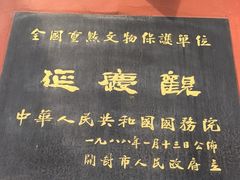 全國重點文物保護單位
延慶觀
中華人民共和國國務院
一九八八年一月十三日公佈
開封市人民政府立